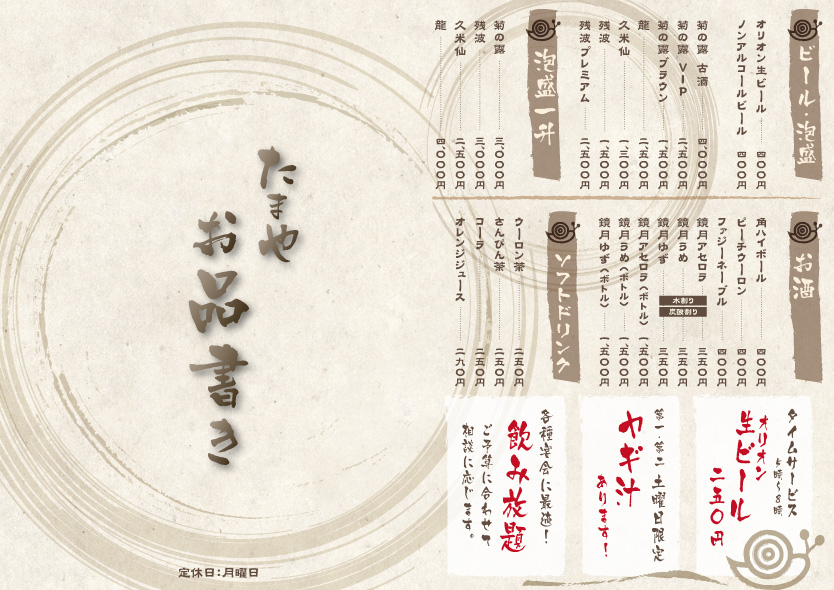 ビール・泡盛
オリオン生ビール 四〇〇円
ノンアルコールビール 四〇〇円
菊の露 古酒 四、〇〇〇円
菊の露 VIP 二、五〇〇円
菊の露ブラウン 一、五〇〇円
龍 二、五〇〇円
久米仙 一、三〇〇円
残波 一、五〇〇円
残波プレミアム 二、五〇〇円
泡盛一升
菊の露 三、〇〇〇円
残波 三、〇〇〇円
久米仙 二、五〇〇円
龍 四、〇〇〇円
お酒
角ハイボール 四〇〇円
ピーチウーロン 四〇〇円
ファジーネーブル 四〇〇円
鏡月アセロラ 三五〇円
鏡月うめ 三五〇円
鏡月ゆず 三五〇円
水割り
炭酸割り
鏡月アセロラ〈ボトル〉 一、五〇〇円
鏡月うめ〈ボトル〉 一、五〇〇円
鏡月ゆず〈ボトル〉 一、五〇〇円
ソフトドリンク
ウーロン茶 二五〇円
さんぴん茶 二五〇円
コーラ 二五〇円
オレンジジュース 二九〇円
タイムサービス
5時〜8時
オリオン
生ビール
二五〇円
第一・第二 土曜日限定
ヤギ汁
あります!
各種宴会に最適!
飲み放題
ご予算に合わせて
相談に応じます。
たまや
お品書き
定休日:月曜日